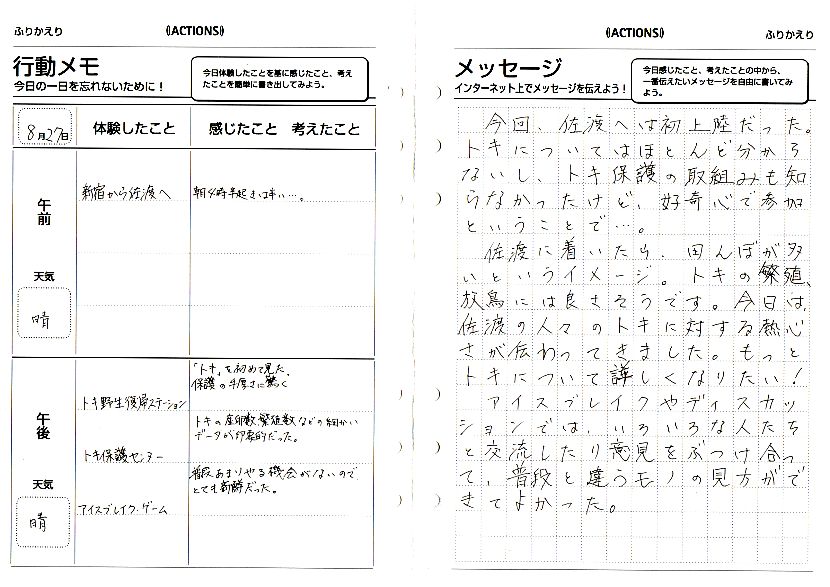 ふりかえり
((ACTIONS))
行動メモ
今日の一日を忘れないために！
今日体験したことを基に感じたこと、考え
たことを簡単に書き出してみよう。
8月27日
体験したこと
感じたこと 考えたこと
午前
新宿から佐渡へ
朝4時半起きは辛い…。
天気
晴
午後
「トキ」を初めて見た。
保護の手厚さに驚く
トキ野生復帰ステーション
トキの産卵数、繁殖数などの細かい
データが印象的だった。
トキ保護センター
普段あまりやる機会がないので
とても新鮮だった。
アイスブレイク・ゲーム
天気
晴
((ACTIONS))
ふりかえり
メッセージ
インターネット上でメッセージを伝えよう！
今日感じたこと、考えたことの中から、
一番伝えたいメッセージを自由に書いてみ
よう。
今回、佐渡へは初上陸だった。
トキについてはほとんど分から
ないし、トキ保護の取組みも知
らなかったけど、好奇心で参加
ということで…。
佐渡に着いたら、田んぼが多
いというイメージ。トキの繁殖、
放鳥には良さそうです。今日は、
佐渡の人々のトキに対する熱心
さが伝わってきました。もっと
トキについて詳しくなりたい！
アイスブレイクやディスカッ
ションでは、いろいろな人たち
と交流したり意見をぶつけ合っ
て、普段と違うモノの見方がで
きてよかった。